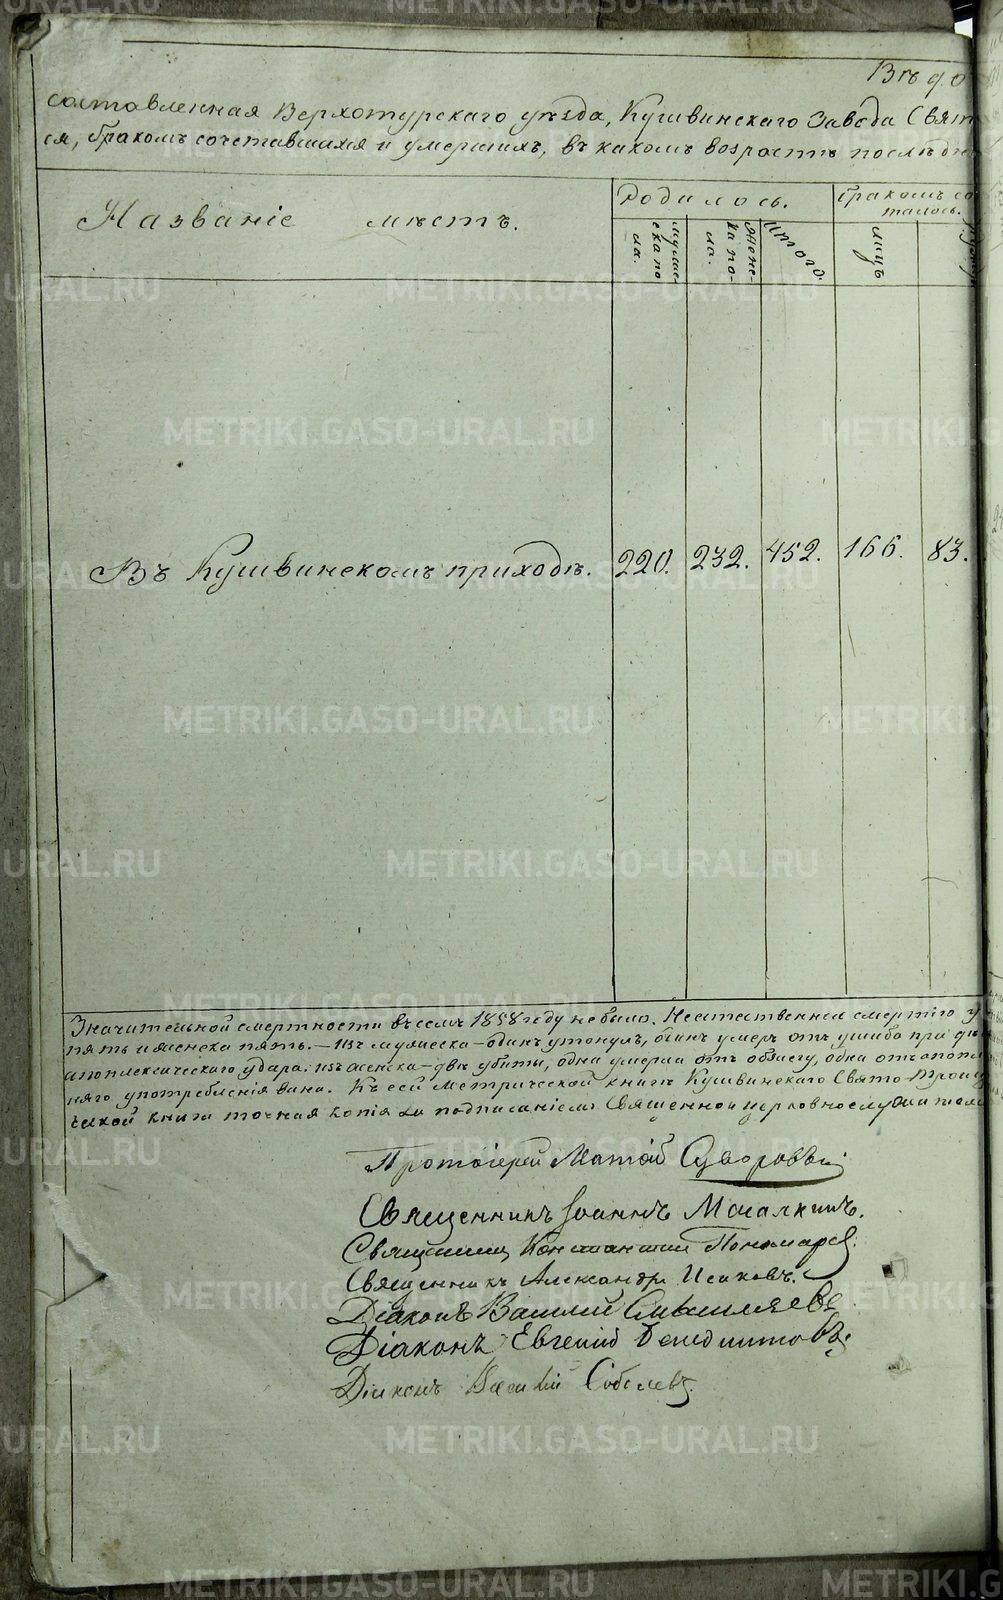 Вѣдо
составленная Верхотурскаго уѣзда, Кушвинскаго Завода Свят
ся, бракомъ сочетавшихся и умершихъ, въ какомъ возрастѣ послѣдн
Названіе мѣстъ.
Родилось.
бракомъ со
талось.
мужес
ска по
ла.
женс
ка по-
ла.
итого.
лицъ
Въ Кушвинскомъ приходѣ. 220. 232. 452. 166. 83.
Значительной смертности въ семъ 1858 году не было. Неестественной смертію у
пять и женска пять. – Изъ мужеска – одинъ утонулъ, одинъ умеръ отъ ушиба при
апоплексическаго удара: изъ женска – двѣ убиты, одна умерла отъ обжегу, одна отъ апопл
няго употребленія вина. Къ сей Метрической книгѣ Кушвинскаго Свято-Троиц
книги точная копія за подписаніемъ Священно и церковнослужител
Протоіерей Матѳій Суворовъ
Священникъ Іоаннъ Мочалкинъ.
Священникъ Константинъ Пономарев
Священникъ Александръ Исаковъ.
Діаконъ Василій
Діаконъ Евгеній Бенедиктовъ.
Діаконъ Василій Соболевъ.
METRIKI.GASO-URAL.RU